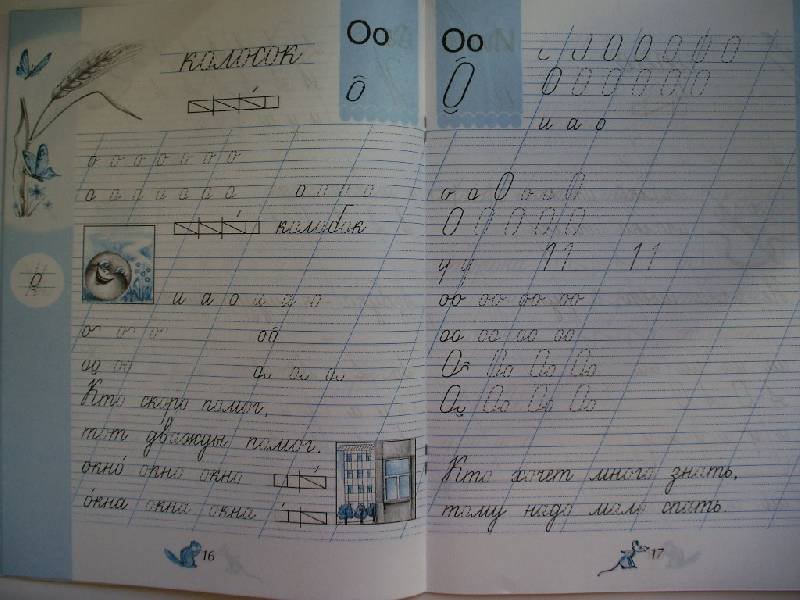 Оо
колосок
о
о о о о о о о
о о о о о о о о о о о
колобок
о
и а о и а о
о о о
оо
оо оо
о о о
Кто скоро помог,
тот дважды помог.
окно окно окно
окна окна окна
16
Оо
О
О О О О О
О О О О О О О
и а о
о а О о а О
О О О О О
11 11
оо оо оо оо
оо оо оо оо
Оо Оо Оо Оо
Оо Оо Оо Оо
Кто хочет много знать,
тому надо мало спать.
17